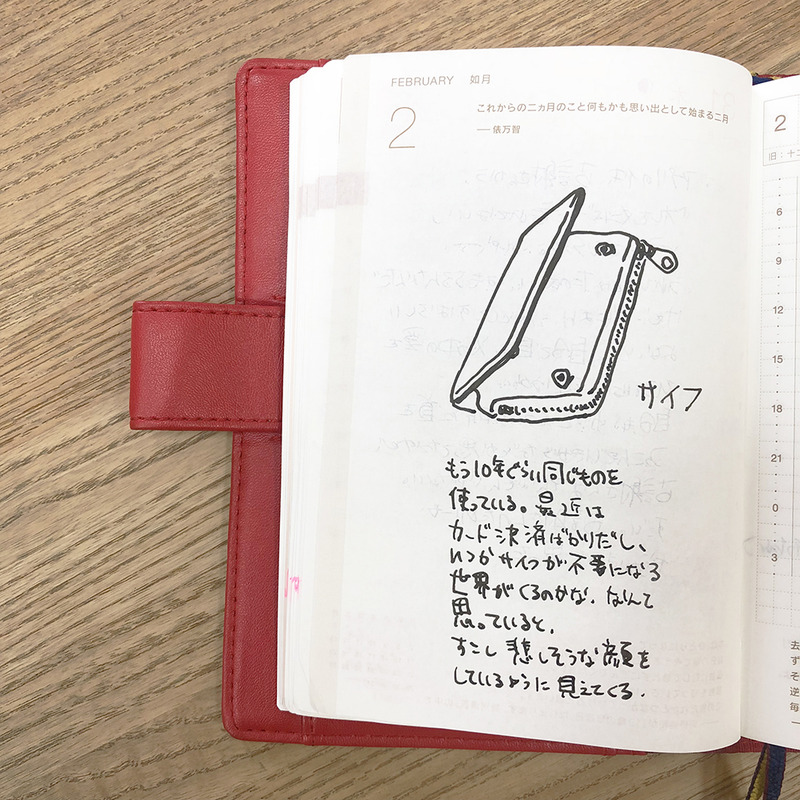 FEBRUARY 如月
2
これからの二ヵ月のこと何もかも思い出として始まる二月
──俵万智
サイフ
もう10年ぐらい同じものを
使っている。最近は
カード決済ばかりだし、
いつかサイフが不要になる
世界がくるのかな.なんて
思っていると、
すこし悲しそうな顔を
しているように見えてくる.
2
旧:十二
6
9
12
15
18
21
0
3
去
ず
そ
逆
毎